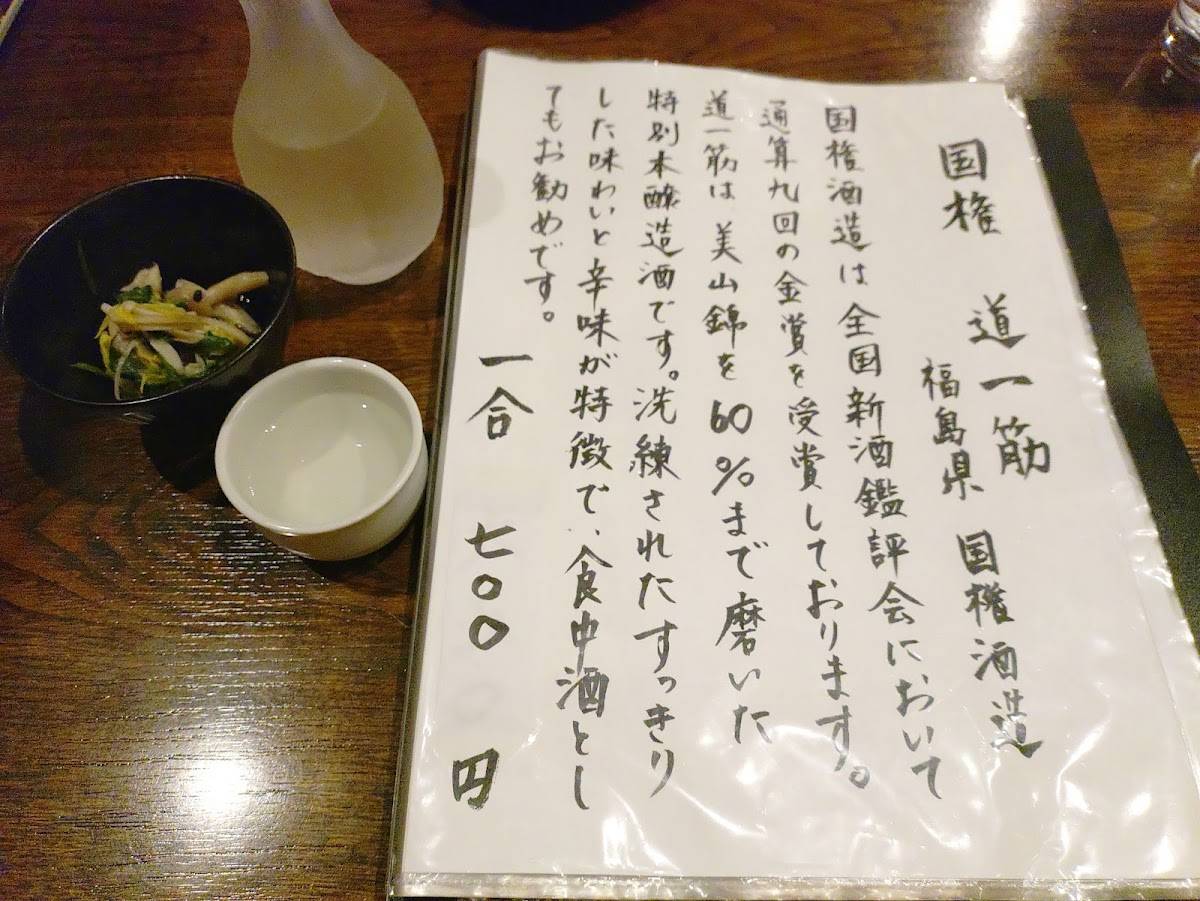 国権 道一筋
福島県 国権酒造
国権酒造は全国新酒鑑評会において
通算九回の金賞を受賞しております。
道一筋は美山錦を60%まで磨いた
特別本醸造酒です。洗練されたすっきり
した味わいと辛味が特徴で、食中酒とし
てもお勧めです。
一合 七〇〇円